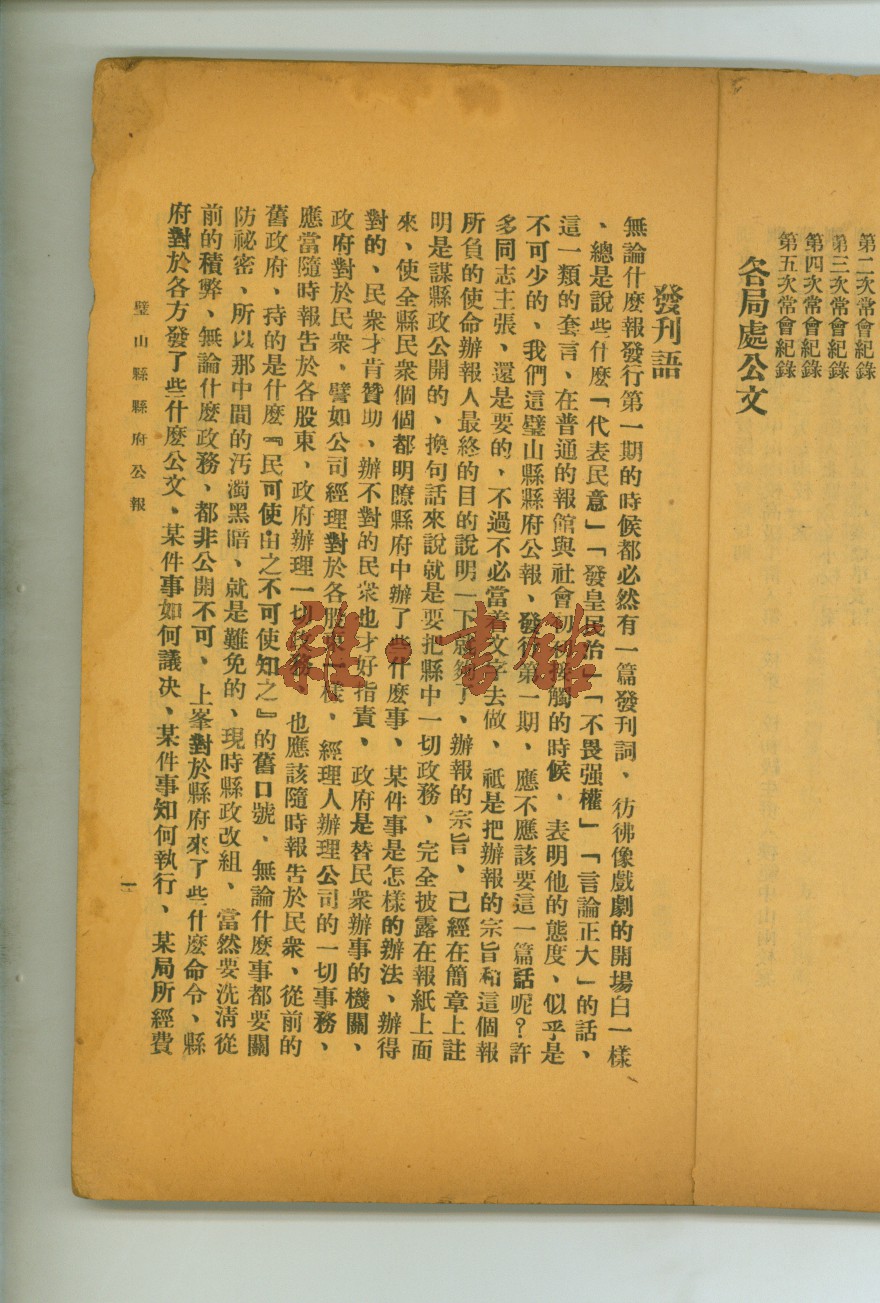 第二次常會紀錄
第三次常會紀錄
第四次常會紀錄
第五次常會紀錄
各局處公文
發刊語
無論什麽報發行第一期的時候都必然有一篇發刊詞、彷彿像戲劇的開場白一樣
、總是說些什麽「代表民意」「發皇民治」「不畏强權」「言論正大」的話、
這一類的套言、在普通的報館與社會初次接觸的時候、表明他的態度、似乎是
不可少的、我們這璧山縣縣府公報、發行第一期、應不應該要這一篇話呢？許
多同志主張、還是要的、不過不必當着文字去做、祗是把辦報的宗旨和這個報
所負的使命辦報人最終的目的說明一下就夠了、辦報的宗旨、已經在簡章上註
明是謀縣政公開的、換句話來說就是要把縣中一切政務、完全披露在報紙上面
來、使全縣民衆個個都明瞭縣府中辦了些什麽事、某件事是怎樣的辦法、辦得
對的、民衆才肯贊助、辦不對的民衆也才好指責、政府是替民衆辦事的機關、
政府對於民衆、譬如公司經理對於各股東一樣、經理人辦理公司的一切事務、
應當隨時報告於各股東、政府辦理一切政務、也應該隨時報告於民衆、從前的
舊政府、持的是什麽『民可使由之不可使知之』的舊口號、無論什麽事都要關
防祕密、所以那中間的汚濁黑暗、就是難免的、現時縣政改組、當然要洗淸從
前的積弊、無論什麽政務、都非公開不可、上峯對於縣府來了些什麽命令、縣
府對於各方發了些什麽公文、某件事如何議决、某件事知何執行、某局所經費
璧山縣縣府公報
一
雒·書館